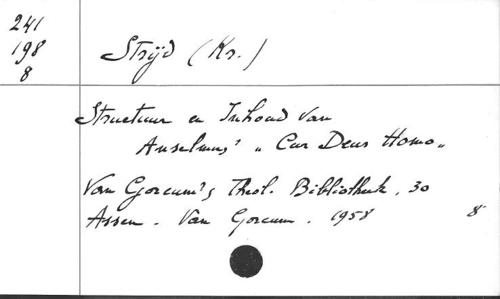 241
198
8
Strijd (Kr.)
Structuur en Inhoud van
Anselmus' „ Cur Deus Homo „
Van Gorcum's Theol. Bibliotheek, 30
Assen. Van Gorcum. 1958 8